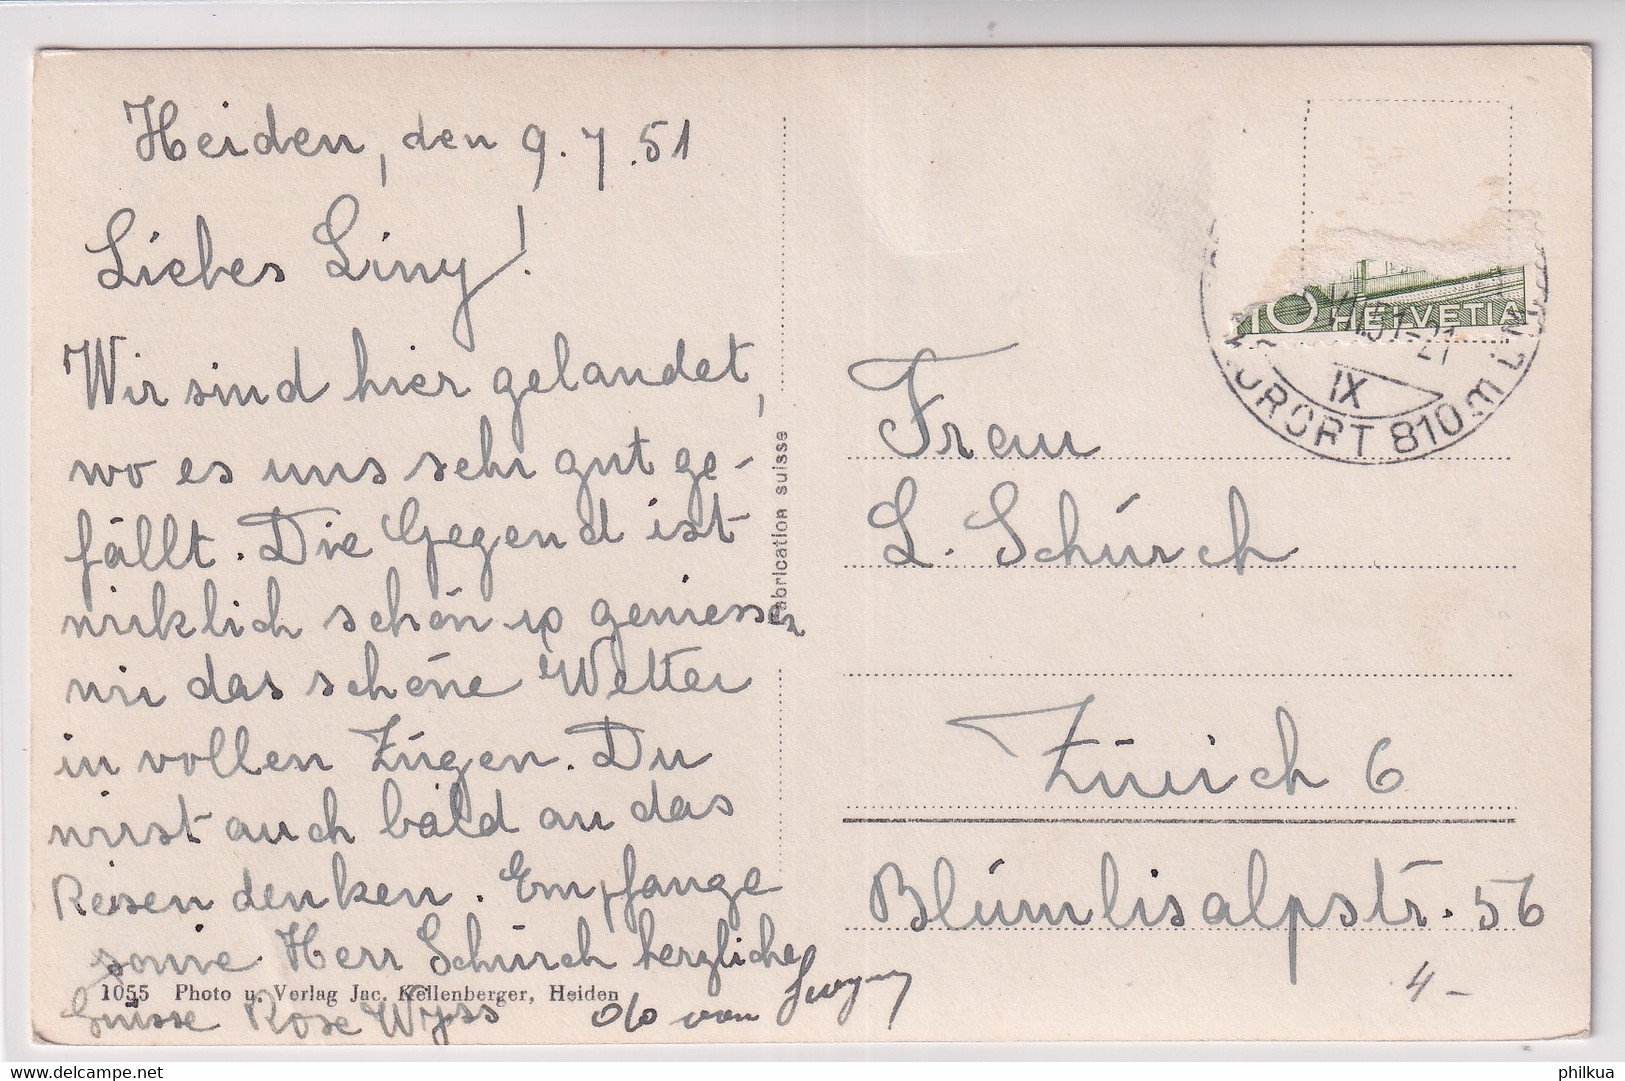 Heiden, den 9.7.51
Liebes Liny!
Wir sind hier gelandet,
wo es uns sehr gut ge-
fällt. Die Gegend ist
wirklich schön u. geniessen
wir das schöne Wetter
in vollen Zügen. Du
wirst auch bald an das
Reisen denken. Empfange
sowie Herr Schürch herzliche
1055 Photo u. Verlag Jac. Kellenberger, Heiden
Grüsse Rose Wyss
Fabrication suisse
10 HELVETIA
VII.51-21
IX
KURORT 810m
Frau
L. Schürch
Zürich 6
Blümlisalpstr. 56
4-
philkua